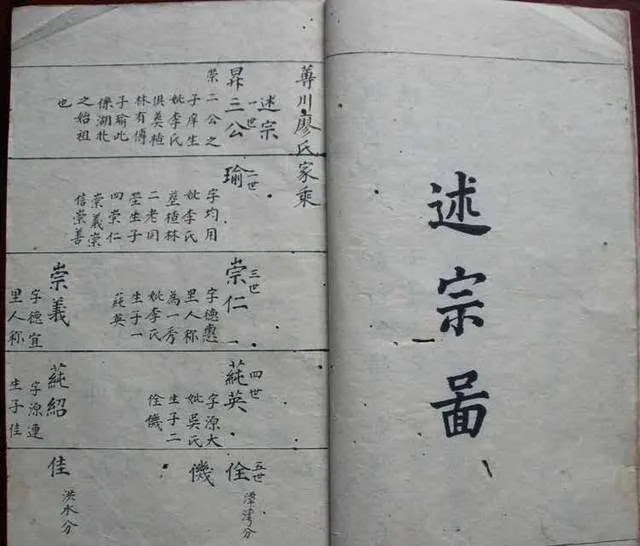 述宗啚
川廖氏家乘
一世
述宗
昇三公
榮二公之
子庠生
妣李氏
俱
林有傳
子瑜此
係湖北
之始祖
也
二世
瑜
字均用
妣李氏
林
二老同
塋生子
四崇仁
崇義崇
信崇善
三世
崇仁
字德惠
里人称
為一秀
妣李氏
生子一
蒓英
崇義
字德宜
里人称
四世
蒓英
字源大
妣吳氏
生子二
佺僟
蒓紹
字源連
生子佳
五世
佺
分
僟
佳
洪水分